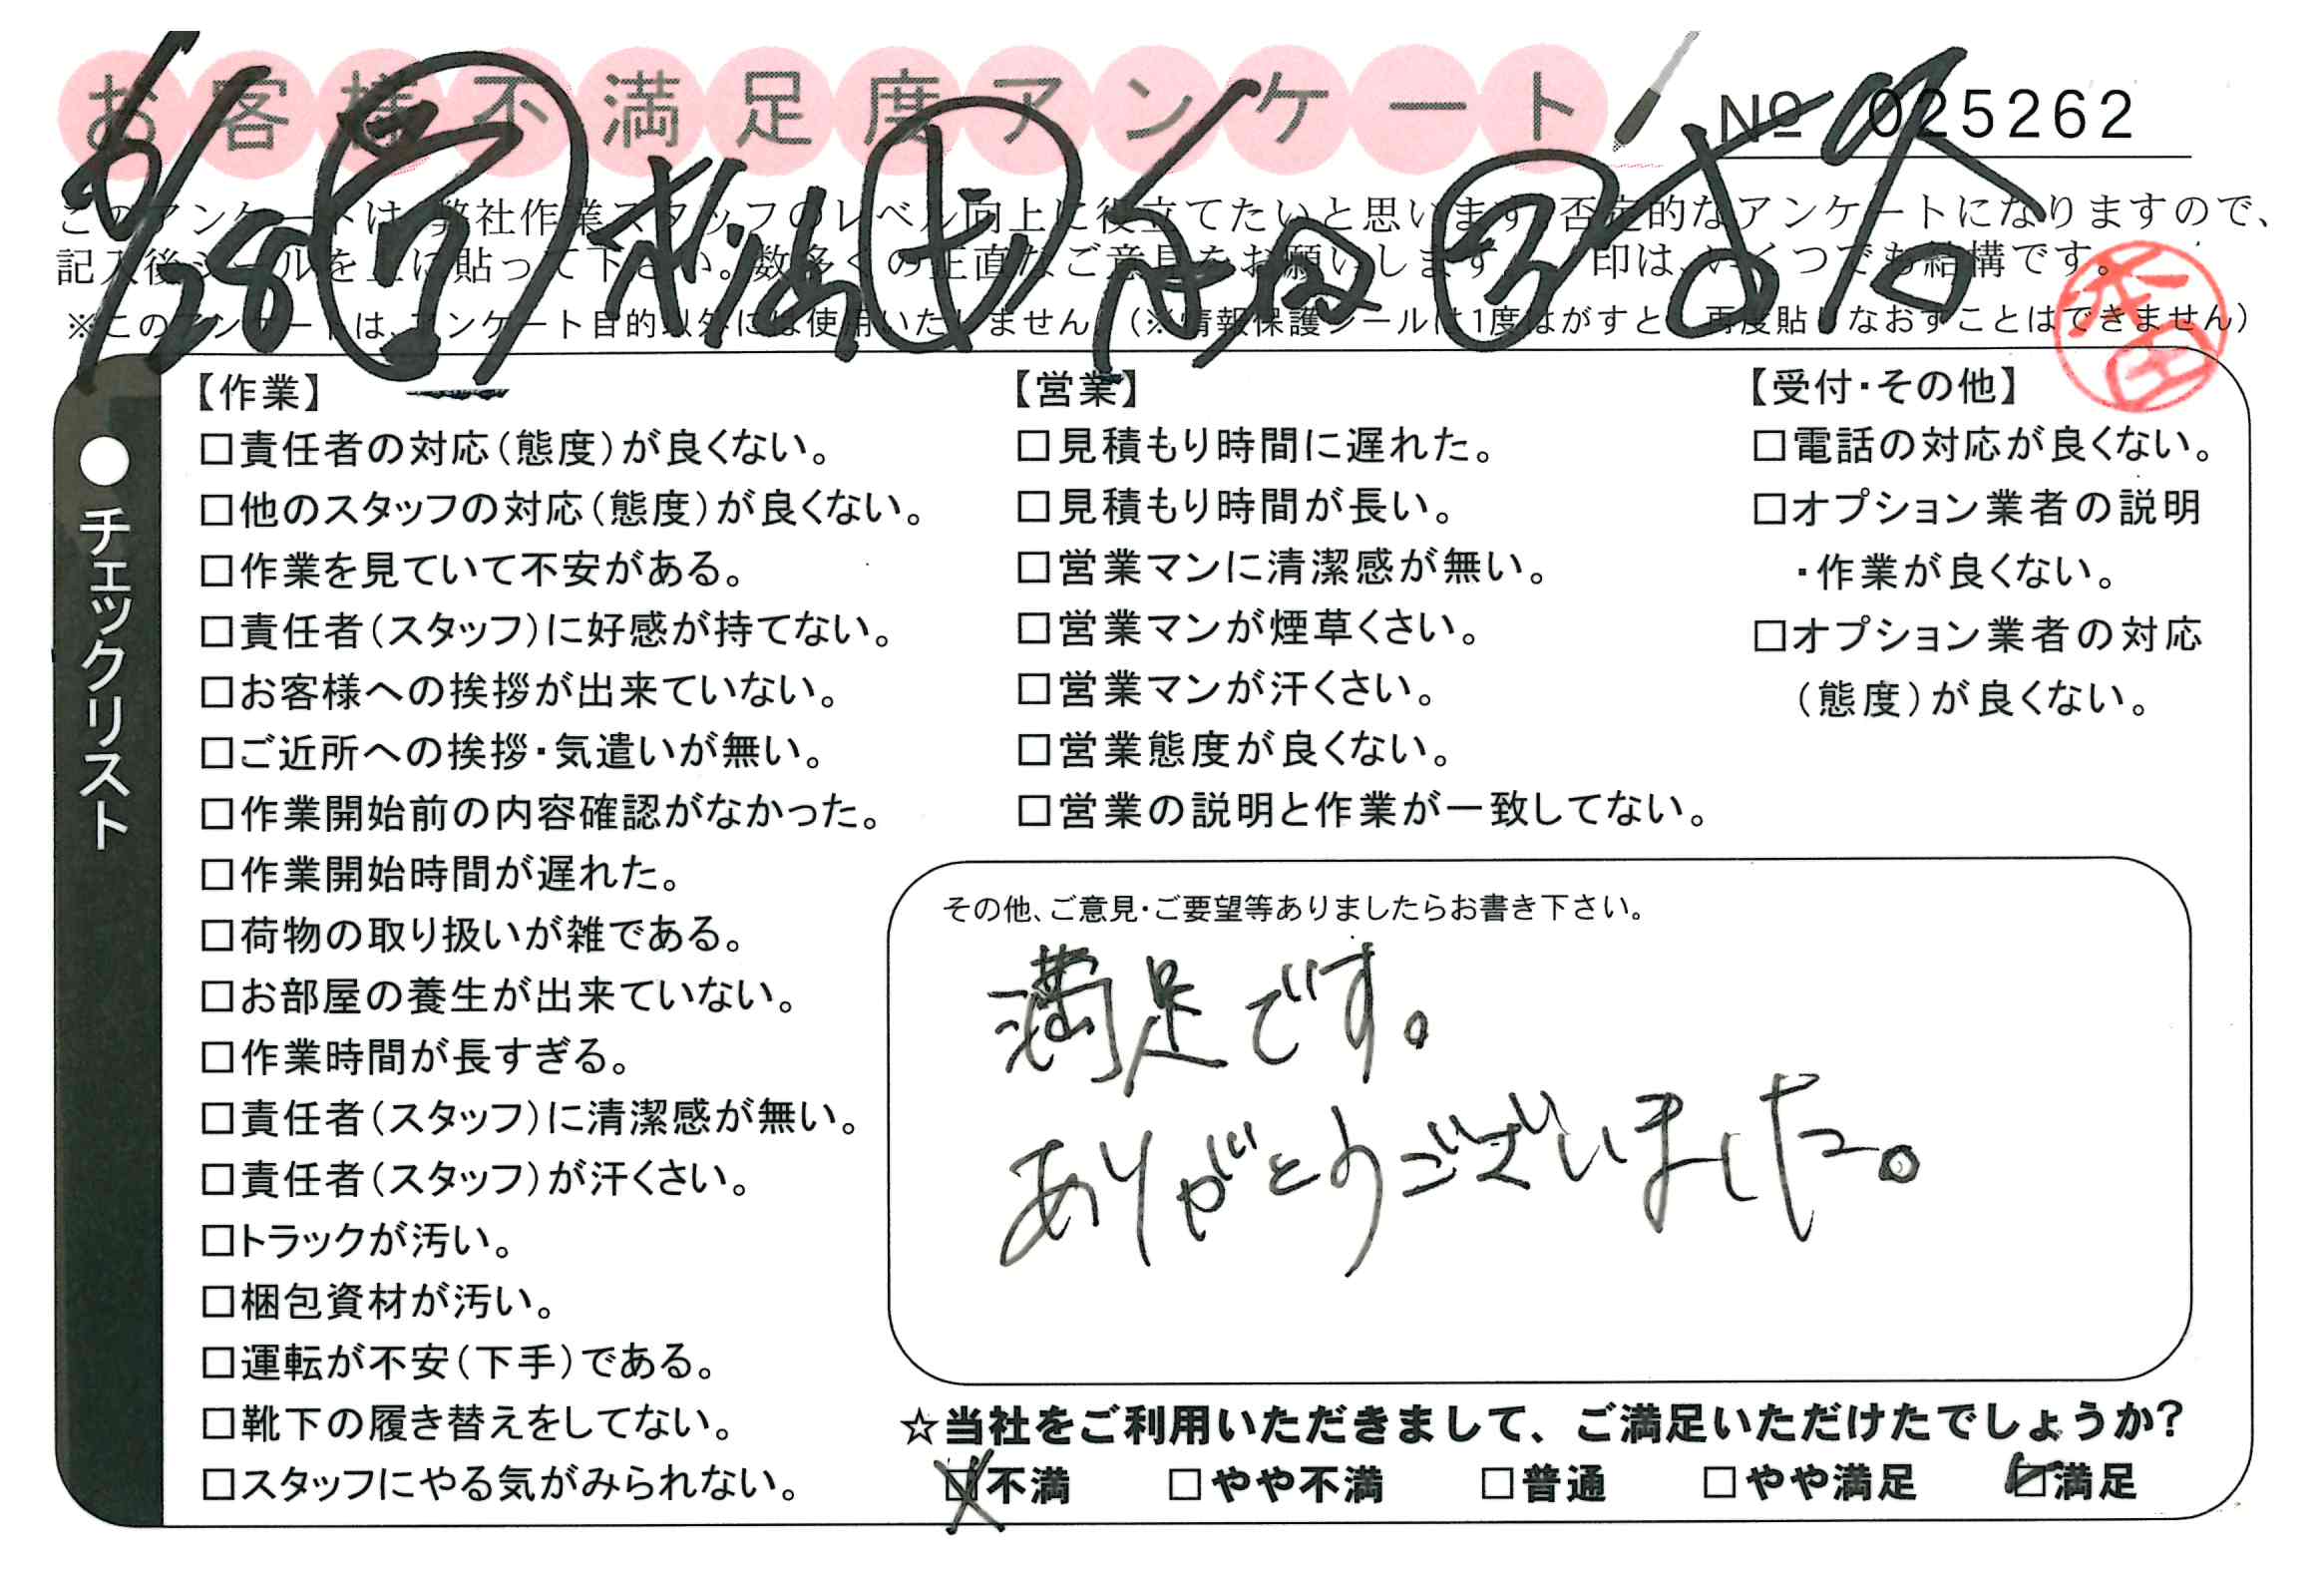 お客様不満足度アンケート
№ 025262
6/28 ア 松山 セ 有田 ア
このアンケートは、弊社作業スタッフのレベル向上に役立てたいと思います。否定的なアンケートになりますので、
記入後シールを上に貼って下さい。数多くの正直なご意見をお願いします。 印は、いくつでも結構です。
※このアンケートは、アンケート目的以外には使用いたしません。(※情報保護シールは1度はがすと、再度貼りなおすことはできません)
●チェックリスト
【作業】
□責任者の対応(態度)が良くない。
□他のスタッフの対応(態度)が良くない。
□作業を見ていて不安がある。
□責任者(スタッフ)に好感が持てない。
□お客様への挨拶が出来ていない。
□ご近所への挨拶・気遣いが無い。
□作業開始前の内容確認がなかった。
□作業開始時間が遅れた。
□荷物の取り扱いが雑である。
□お部屋の養生が出来ていない。
□作業時間が長すぎる。
□責任者(スタッフ)に清潔感が無い。
□責任者(スタッフ)が汗くさい。
□トラックが汚い。
□梱包資材が汚い。
□運転が不安(下手)である。
□靴下の履き替えをしてない。
□スタッフにやる気がみられない。
【営業】
□見積もり時間に遅れた。
□見積もり時間が長い。
□営業マンに清潔感が無い。
□営業マンが煙草くさい。
□営業マンが汗くさい。
□営業態度が良くない。
□営業の説明と作業が一致してない。
【受付・その他】
□電話の対応が良くない。
□オプション業者の説明
・作業が良くない。
□オプション業者の対応
(態度)が良くない。
その他、ご意見・ご要望等ありましたらお書き下さい。
満足です。
ありがとうございました。
☆当社をご利用いただきまして、ご満足いただけたでしょうか?
□不満 □やや不満 □普通 □やや満足 ☑満足